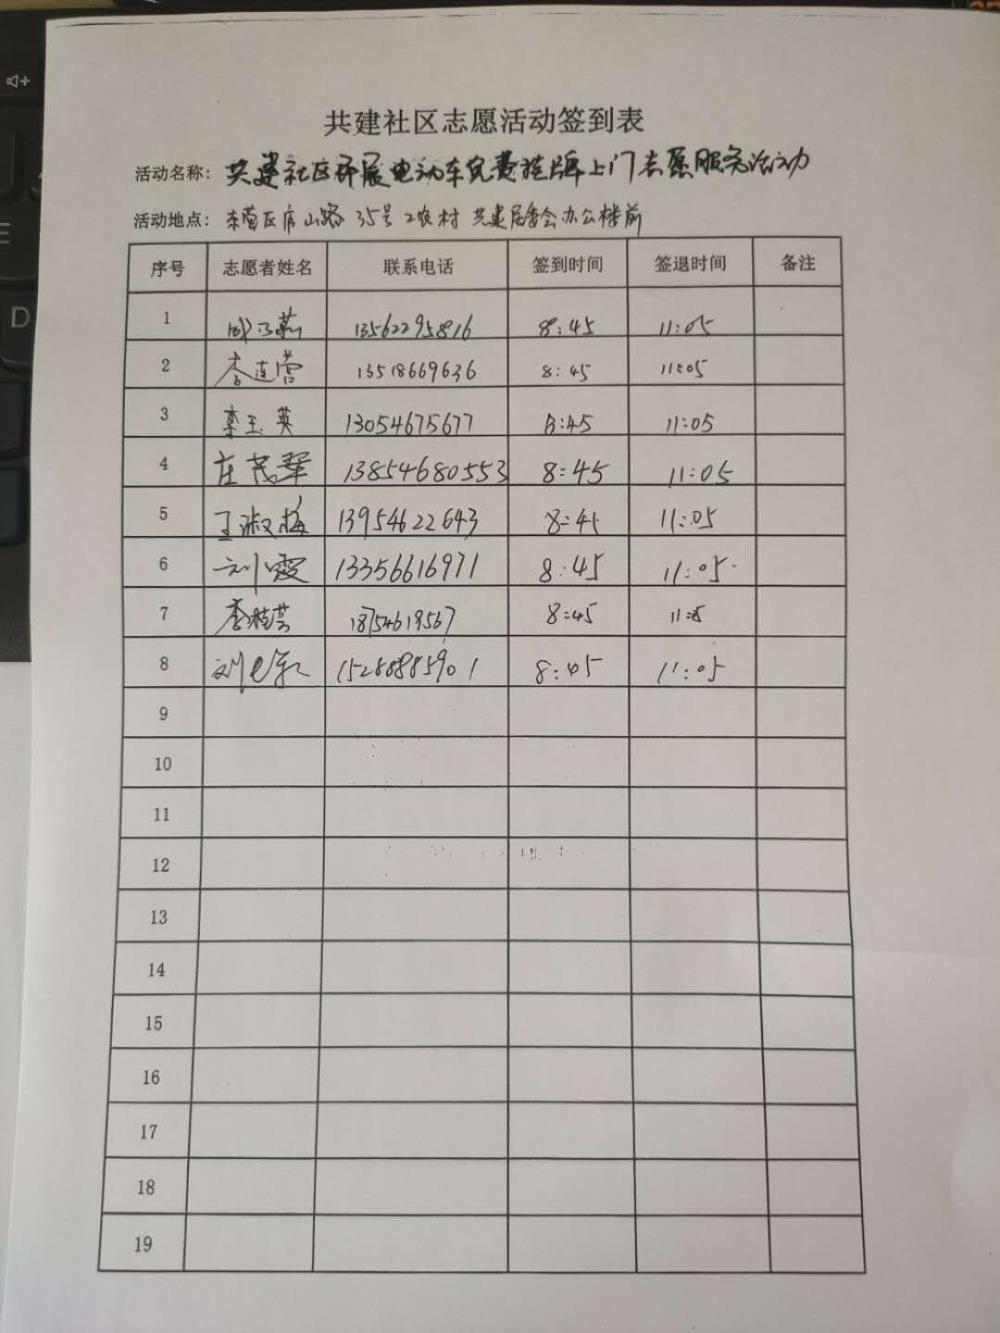 共建社区志愿活动签到表
活动名称: 共建社区开展电动车免费挂牌上门志愿服务活动
活动地点: 东营区唐山路 35号 工农村 共建居委会办公楼前
序号 志愿者姓名 联系电话 签到时间 签退时间 备注
1 13562295816 8:45 11:05
2 李连营 13518669636 8:45 11:05
3 李玉英 13054675677 8:45 11:05
4 13854680553 8:45 11:05
5 王淑梅 13954622643 8:45 11:05
6 刘霞 13356616971 8:45 11:05
7 李桂芸 18754619567 8:45 11:05
8 15288885901 8:45 11:05
9
10
11
12
13
14
15
16
17
18
19
D
E